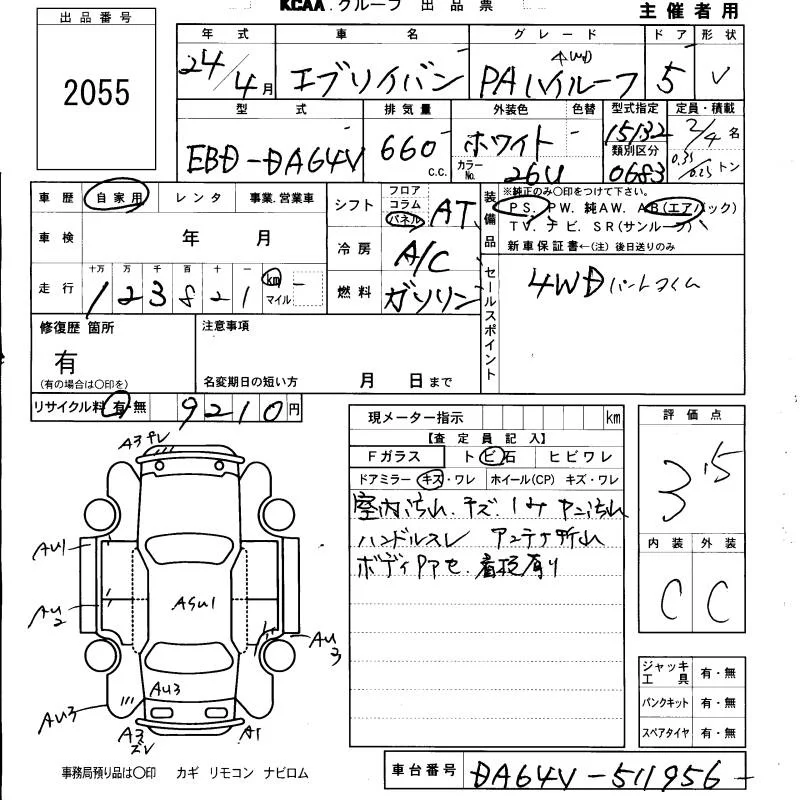 KCAA.グループ 出品票
主催者用
出品番号
2055
年式 車名 グレード ドア 形状
24/4月 エブリイバン PAハイルーフ 4WD 5 V
型式 排気量 外装色 色替 型式指定 定員・積載
EBD-DA64V 660 c.c. ホワイト カラーNo. 26U 15132 2/4名
類別区分
0683 0.35/0.25トン
車歴 自家用 レンタ 事業.営業車
シフト フロア コラム パネル AT
装備品 ※純正のみ〇印をつけて下さい。
PS. PW. 純AW. AB(エアバック)
TV. ナビ. SR(サンルーフ)
新車保証書←(注)後日送りのみ
車検 年 月
冷房 A/C
走行 十万 万 千 百 十 一
123821 km マイル
燃料 ガソリン
セールスポイント
4WD パートタイム
修復歴 箇所
有
(有の場合は〇印を)
注意事項
名変期日の短い方 月 日まで
リサイクル料 有・無 9210円
現メーター指示 km
【査定員記入】
Fガラス トビ石 ヒビワレ
ドアミラー キズ・ワレ ホイール(CP) キズ・ワレ
室内汚れ.キズ.シミ ヤニ汚れ
ハンドルスレ アンテナ折れ
ボディ 色アセ.着板有り
評価点
3.5
内装 外装
C C
A3 PV
AU1
AU2
ASU1
AU3
AU3
AU3
A3
A1
ジャッキ工具 有・無
パンクキット 有・無
スペアタイヤ 有・無
事務局預り品は〇印 カギ リモコン ナビロム
車台番号 DA64V-511956-